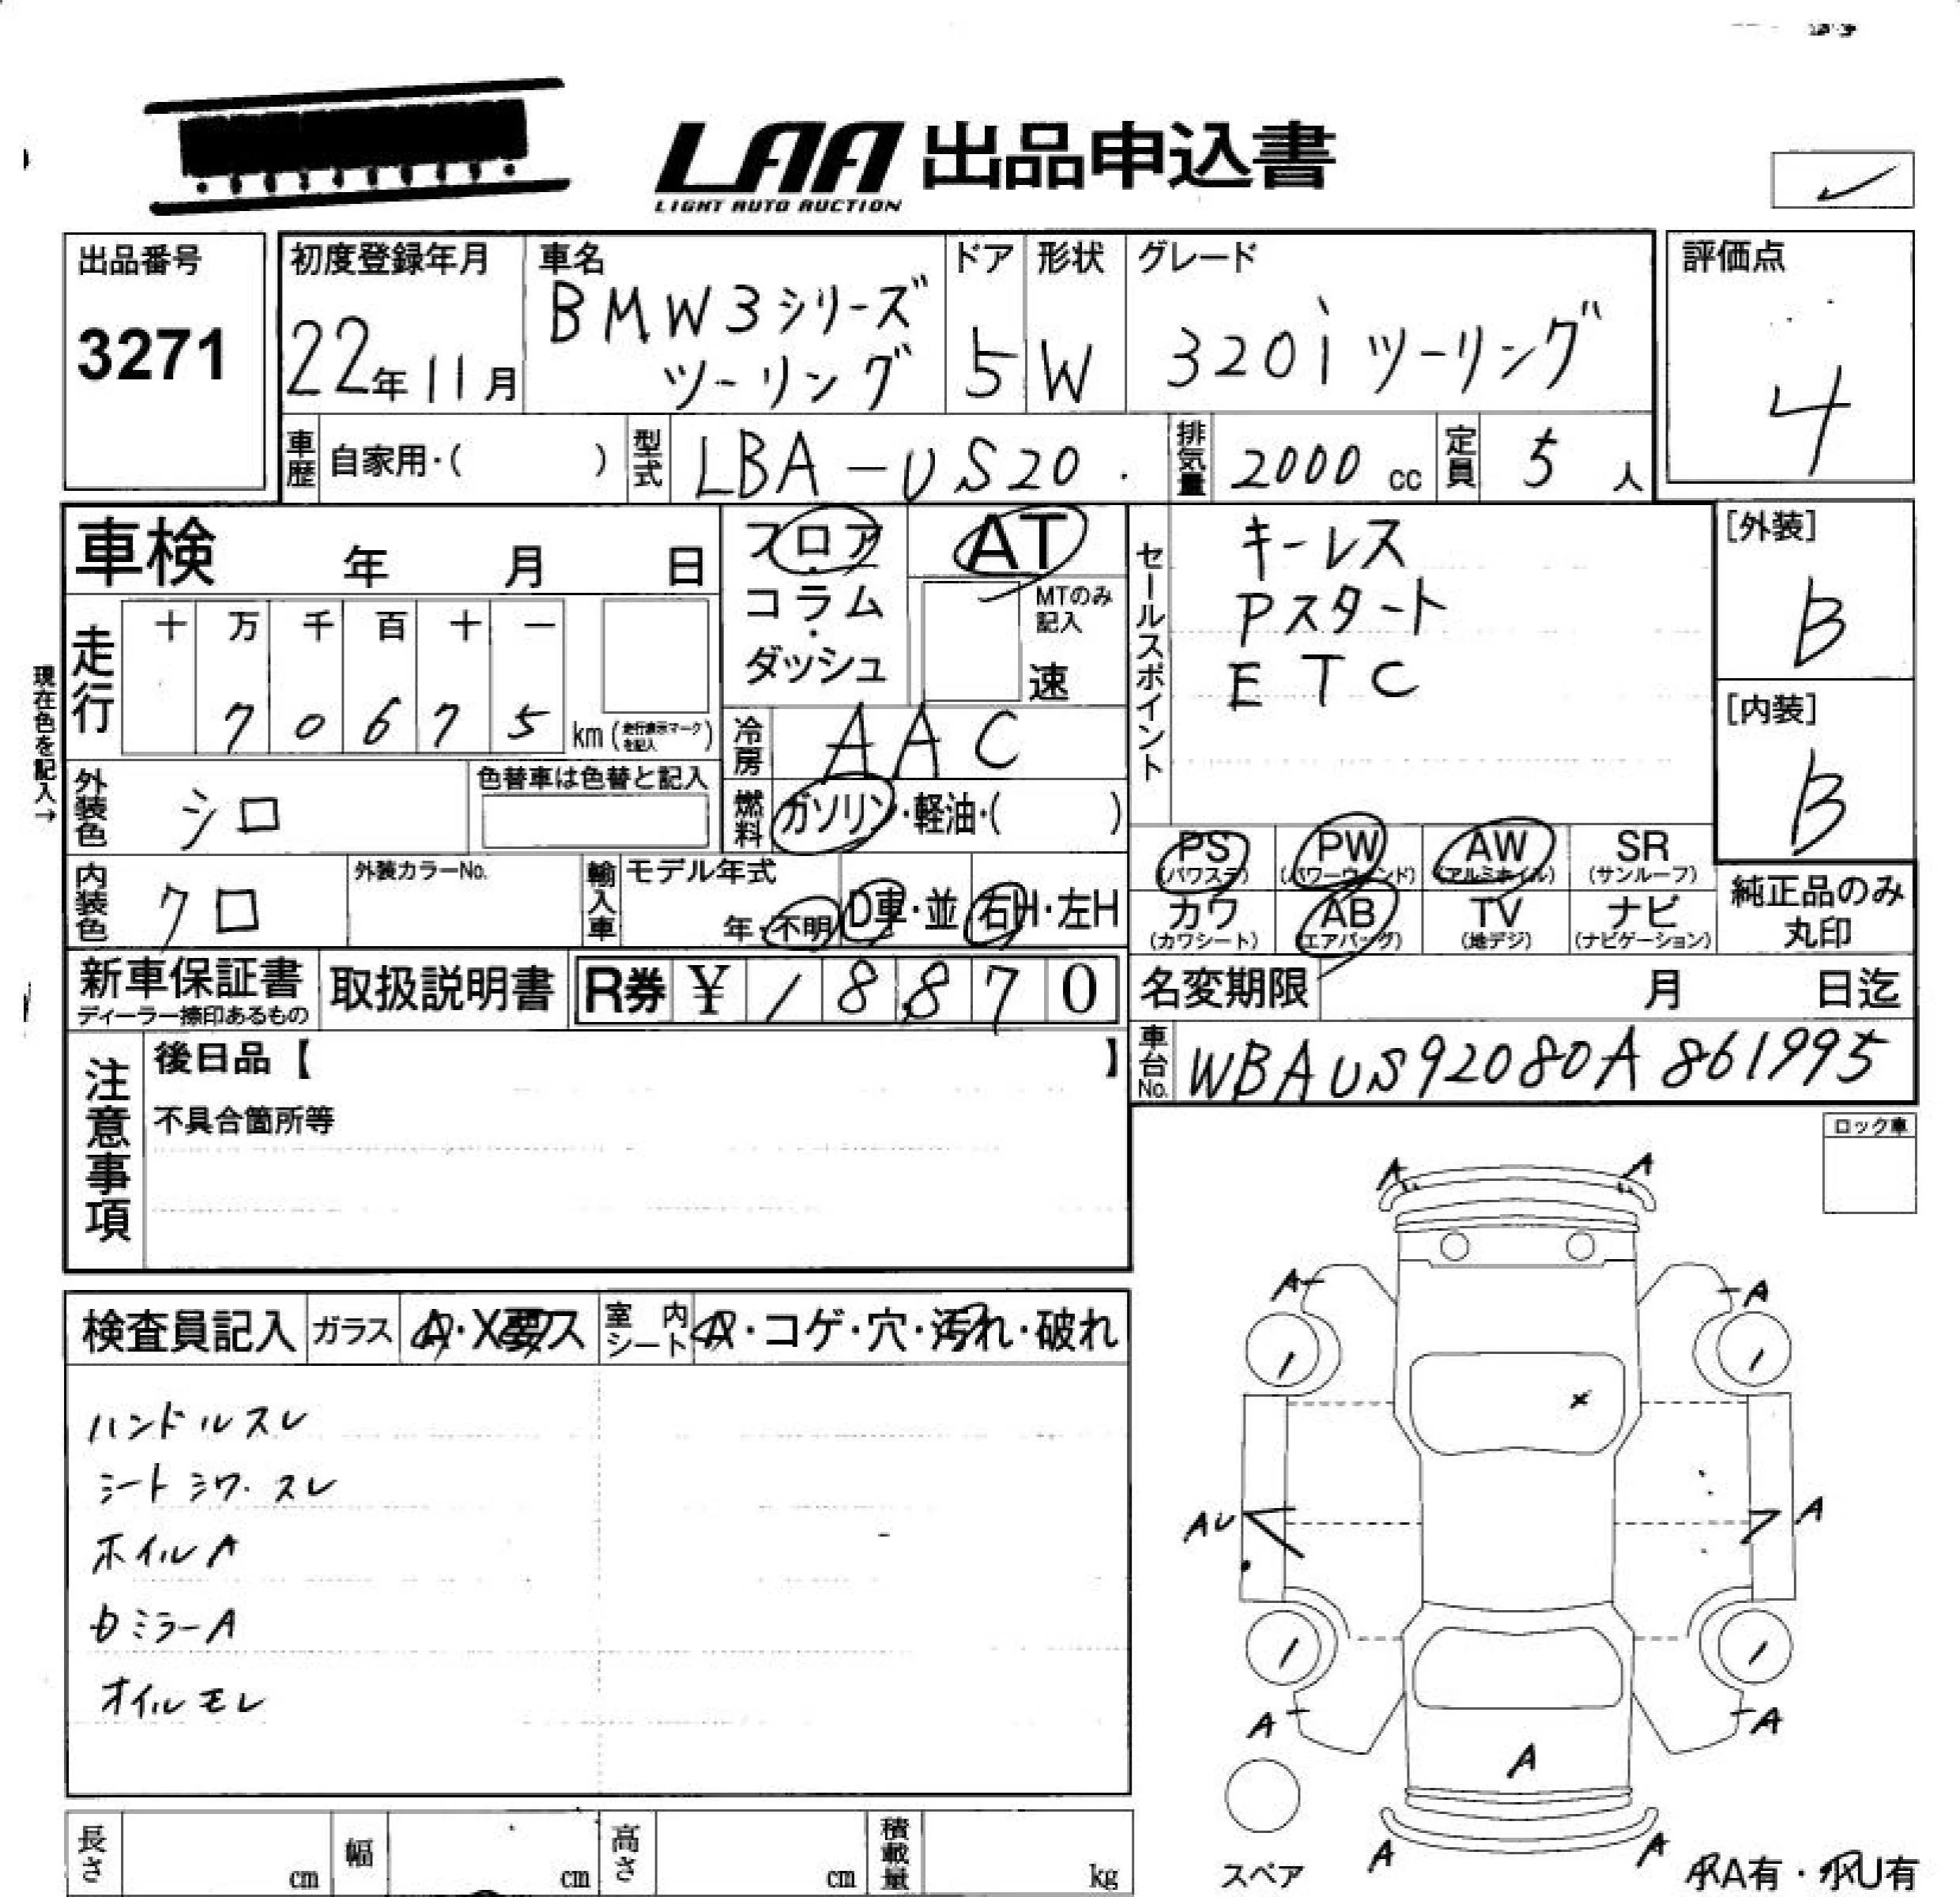 LAA 出品申込書
LIGHT AUTO AUCTION
出品番号
3271
初度登録年月
22年11月
車名
BMW3シリーズ
ツーリング
ドア
5
形状
W
グレード
320iツーリング
評価点
4
車歴 自家用・( )
型式 LBA-US20
排気量 2000 cc
定員 5 人
車検 年 月 日
フロア
・
コラム
・
ダッシュ
AT
MTのみ
記入
速
セールスポイント
キーレス
Pスタート
ETC
[外装]
B
[内装]
B
現在色を記入→
走行
十 万 千 百 十 一
7 0 6 7 5 km(走行表示マークを記入)
冷房 AAC
外装色 シロ
色替車は色替と記入
燃料 ガソリン・軽油・( )
内装色 クロ
外装カラーNo.
輸入車
モデル年式
年・不明
D車・並
右H・左H
PS (パワステ)
PW (パワーウィンド)
AW (アルミホイル)
SR (サンルーフ)
カワ (カワシート)
AB (エアバッグ)
TV (地デジ)
ナビ (ナビゲーション)
純正品のみ
丸印
新車保証書
ディーラー捺印あるもの
取扱説明書
R券 ¥ 1 8 8 7 0
名変期限 月 日迄
車台No. WBAUS92080A861995
注意事項
後日品【 】
不具合箇所等
ロック車
検査員記入
ガラス A・X要ス
室内シート A・コゲ・穴・汚れ・破れ
ハンドルスレ
シートシワ・スレ
ホイルA
カミラーA
オイルモレ
A A
A A
×
AU A
A A
A
A A
スペア
小A有・小U有
長さ cm
幅 cm
高さ cm
積載量 kg